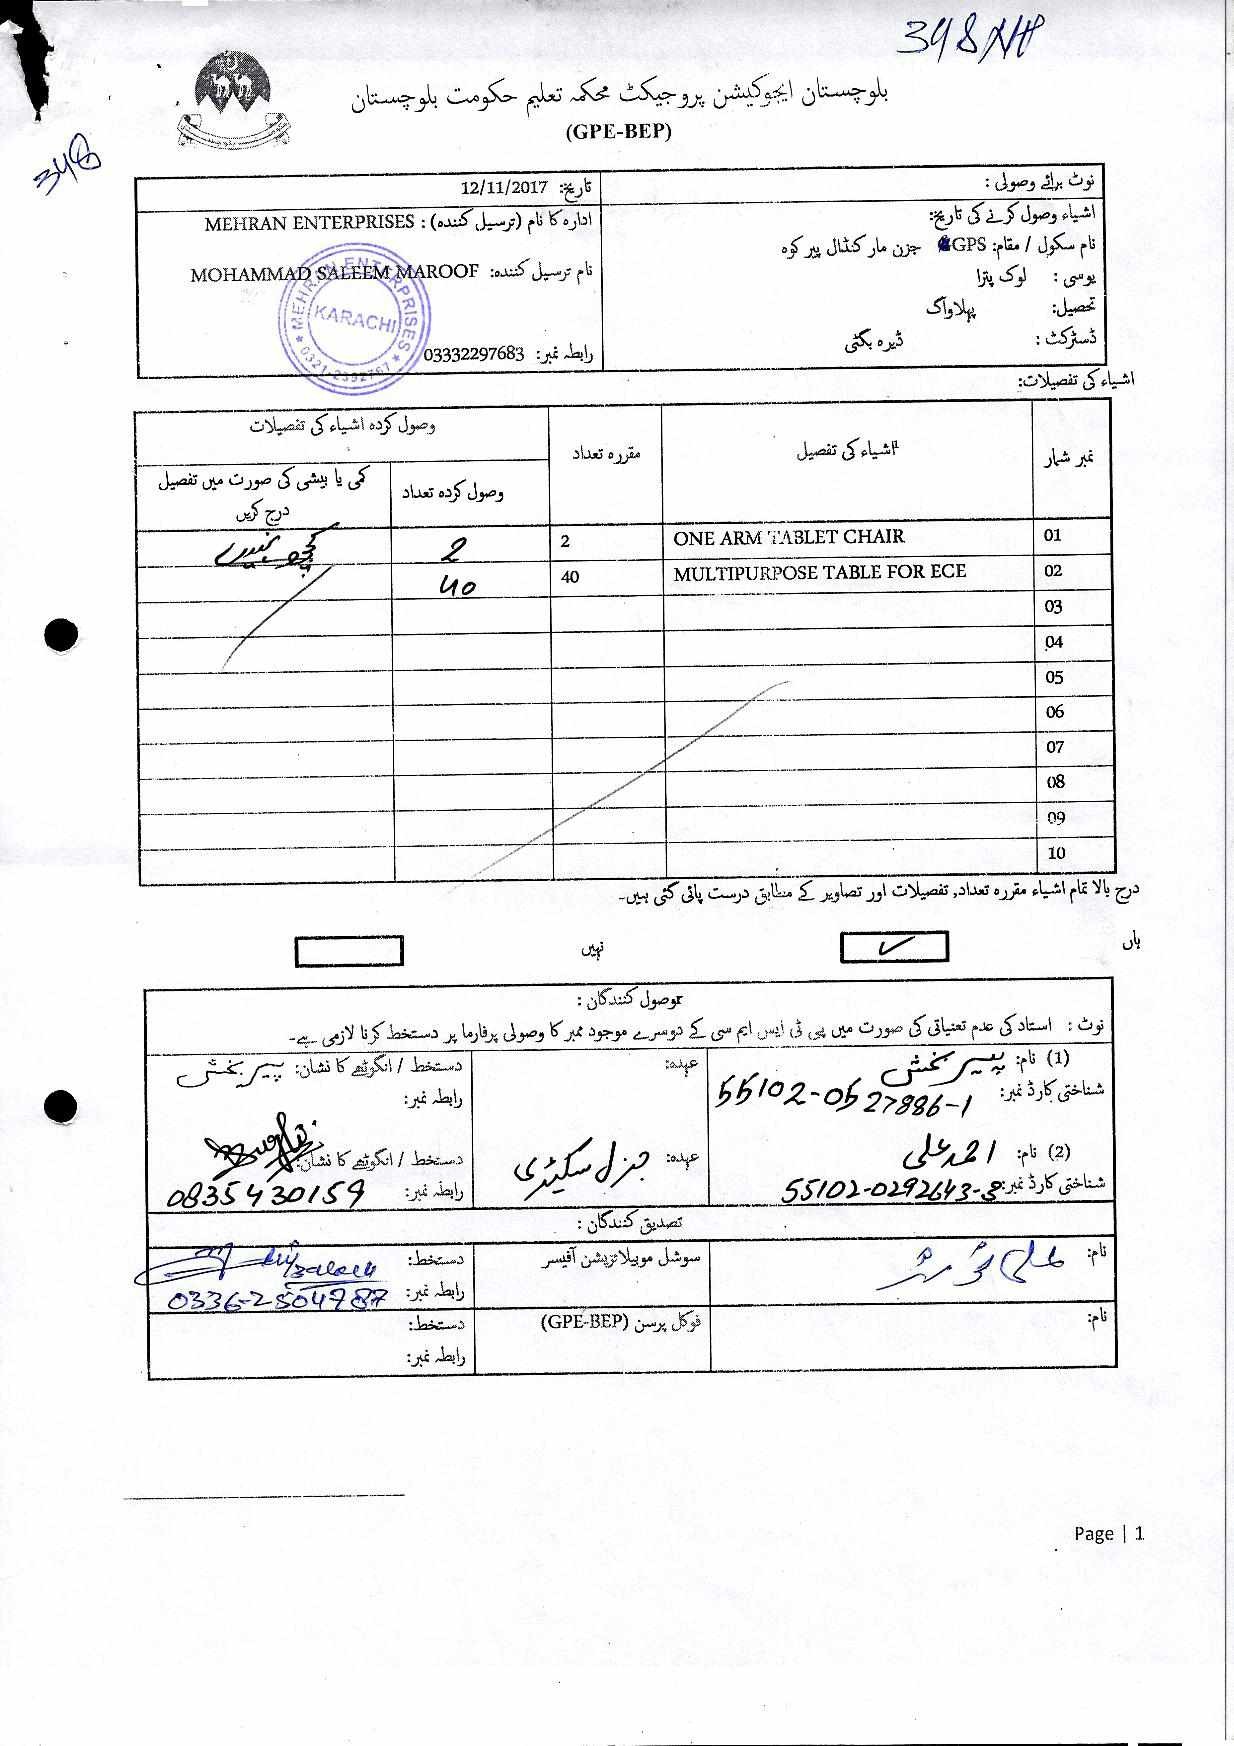 348 NP
348
بلوچستان ایجوکیشن پروجیکٹ محکمہ تعلیم حکومت بلوچستان
(GPE-BEP)
نوٹ برائے وصولی :
تاریخ: 12/11/2017
اشیاء وصول کرنے کی تاریخ:
ادارہ کا نام (ترسیل کنندہ) : MEHRAN ENTERPRISES
نام سکول / مقام: GPS جزن مار کنڈال پیر کوہ
نام ترسیل کنندہ: MOHAMMAD SALEEM MAROOF
یوسی : لوک پترا
تحصیل: پہلاواگ
ڈسٹرکٹ : ڈیرہ بگٹی
رابطہ نمبر: 03332297683
MEHRAN ENTERPRISES
KARACHI
اشیاء کی تفصیلات:
نمبر شمار
اشیاء کی تفصیل
مقررہ تعداد
وصول کردہ اشیاء کی تفصیلات
وصول کردہ تعداد
کمی یا بیشی کی صورت میں تفصیل درج کریں
01 ONE ARM TABLET CHAIR 2 2 کچھ نہیں
02 MULTIPURPOSE TABLE FOR ECE 40 40
03
04
05
06
07
08
09
10
درج بالا تمام اشیاء مقررہ تعداد, تفصیلات اور تصاویر کے مطابق درست پائی گئی ہیں۔
ہاں ✓ نہیں
وصول کنندگان :
نوٹ : استاد کی عدم تعیناتی کی صورت میں پی ٹی ایس ایم سی کے دوسرے موجود ممبر کا وصولی پرفارما پر دستخط کرنا لازمی ہے۔
(1) نام: پیر بخش عہدہ: دستخط / انگوٹھے کا نشان: پیر بخش
شناختی کارڈ نمبر: 55102-0527886-1 رابطہ نمبر:
(2) نام: احمد علی عہدہ: جنرل سیکٹری دستخط / انگوٹھے کا نشان:
شناختی کارڈ نمبر: 55102-0292643-3 رابطہ نمبر: 0835430159
تصدیق کنندگان :
نام: سوشل موبیلائزیشن آفیسر دستخط:
رابطہ نمبر: 0336-2504787
نام: فوکل پرسن (GPE-BEP) دستخط:
رابطہ نمبر:
Page | 1